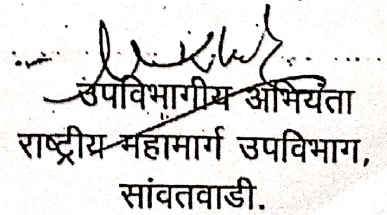 उपविभागीय अभियंता
राष्ट्रीय महामार्ग उपविभाग,
सांवतवाडी.